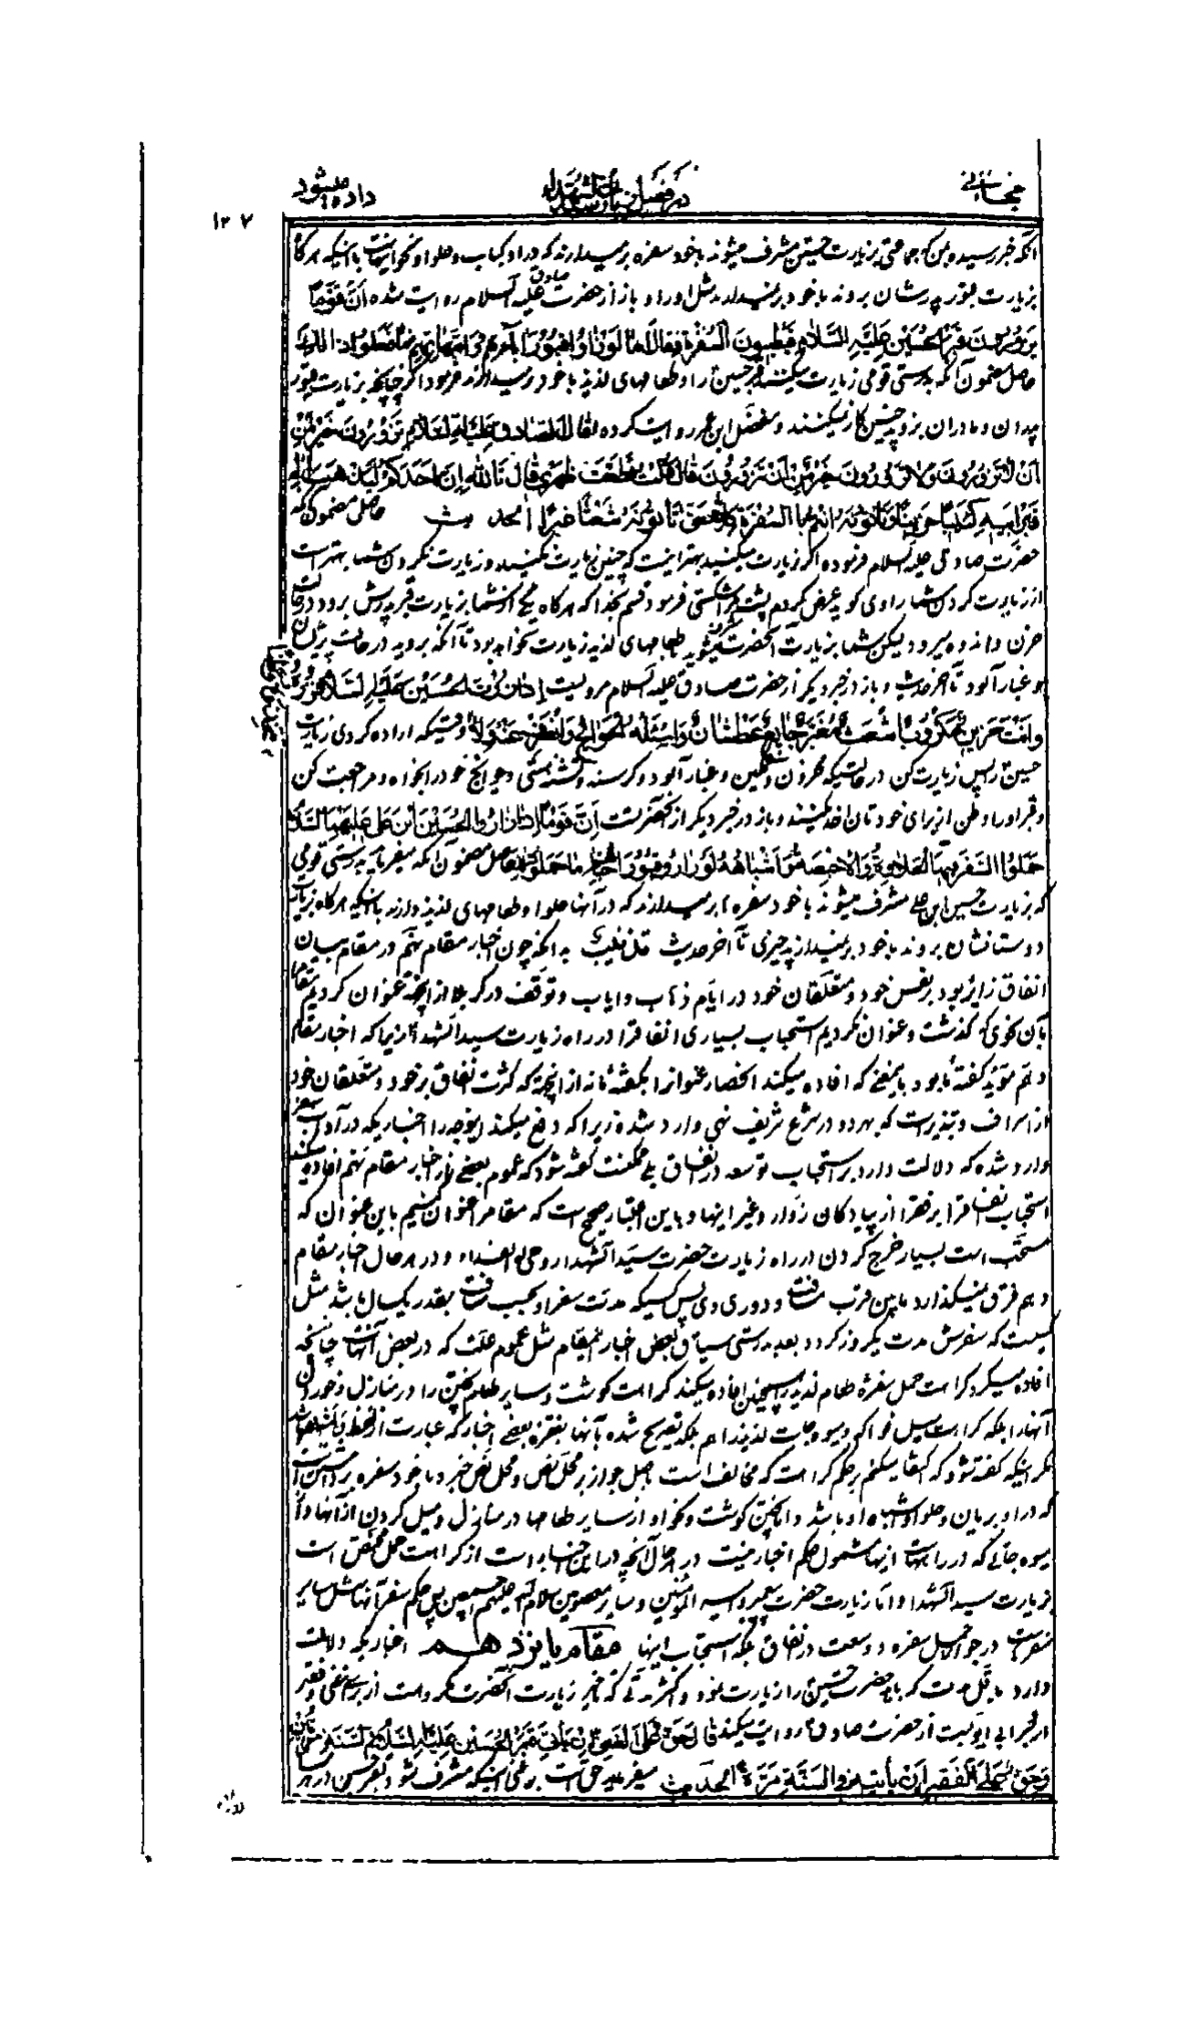 در فضل زیارت سید الشهداء
داده میشود
۱۲۷
آنکه خبر رسیده بمن که جماعتی بزیارت حسین مشرف میشوند با خود سفره برمیدارند که در او کباب و حلوا و نحو اینهاست با اینکه هرگاه
بزیارت قبور پدرشان بروند با خود برنمیدارند مثل او را و باز از حضرت صادق علیه السلام روایت شده ان قوما
یزورون قبر الحسین علیه السلام فیطیبون السفر فقال اما لو زاروا قبور آبائهم وامهاتهم ما فعلوا ذالک
حاصل مضمون آنکه بدرستی قومی زیارت میکنند قبر حسین را و طعامهای لذیذ با خود برمیدارند فرمود اگر چنانچه بزیارت قبور
پدران و مادران بروند چنین کار نمیکنند و مفضل ابن عمر روایت کرده قال الصادق علیه السلام تزورون خیر من
ان لا تزورون ولا تزورون خیر من ان تزورون قال قلت قطعت ظهری قال تالله ان احدکم لیذهب الی
قبر ابیه کئیبا حزینا وتاتونه انتم بالسفر کلا حتی تاتونه شعثا غبرا الحدیث حاصل مضمون آنکه
حضرت صادق علیه السلام فرموده اگر زیارت میکنید بهتر اینست که چنین زیارت نکنید و زیارت نکردن شما بهتر است
از زیارت کردن شما راوی گوید عرض کردم پشت مرا شکستی فرمود قسم بخدا که هرگاه یکی از شما بزیارت قبر پدرش برود در حالت
حزن و اندوه میرود لیکن شما بزیارت آنحضرت میروید با طعامهای لذیذ زیارت نخواهد بود تا آنکه بروید در حالت پژمردن
و غبار آلود تا آخر حدیث و باز در خبر دیگر از حضرت صادق علیه السلام مرویست اذا زرت الحسین علیه السلام فزره
وانت حزین مکروب شعث مغبر جایع عطشان واسئله الحوائج وانصرف عنه ولا وقتیکه اراده کردی زیارت
حسین را پس زیارت کن در حالتیکه محزون و غمگین و غبار آلود و گرسنه و تشنه هستی و حوائج خود را بخواه و مراجعت کن
و قبر او را وطن از برای خودتان اخذ نکنید و باز در خبر دیگر از آنحضرتست ان قوما اذا زاروا الحسین ابن علی علیهما السلام
حملوا السفر فیها الحلاوة والاخبصة واشباهه لو زاروا قبور احبائهم ما حملوا حاصل مضمون آنکه میفرماید بدرستی قومی
که بزیارت حسین ابن علی مشرف میشوند با خود سفره برمیدارند که در آنها حلوا و طعامهای لذیذ دارند با اینکه هرگاه بزیارت
دوستانشان بروند با خود برنمیدارند چیزی تا آخر حدیث بدانکه چون اخبار مقام نهم در مقام بیان
انفاق زایر بود بر نفس خود و متعلقان خود در ایام ذهاب و ایاب و توقف در کربلا از آنجهة عنوان کردیم مقام
بآن نحوی که گذشت و عنوان نکردیم استحباب بسیاری انفاق را در راه زیارت سید الشهداء زیرا که اخبار مقام
دهم مؤید گفته ما بود بمعنی که افاده میکند انحصار عنوان را بگفته ما نه از آنجهة که کثرت انفاق بر خود و متعلقان خود
از اسراف و تبذیر است که بهر دو در شرع شریف نهی وارد شده زیرا که دفع میکند اینوجه را اخباریکه در آداب سفر
وارد شده که دلالت دارد بر استحباب توسعه در انفاق بلی ممکنست گفته شود که عموم بعضی از اخبار مقام نهم افاده میکند
استحباب انفاق را بر فقرا از پیادگان زوار و غیر اینها و باین اعتبار صحیح است که مقام را عنوان کنیم باین عنوان که
مستحب است بسیار خرج کردن در راه زیارت حضرت سید الشهدا روحی له الفداء و در هر حال اخبار مقام
دهم فرق نمیگذارد مابین قرب مسافت و دوری وی پس کسیکه مدت سفر او بحسب مسافت بقدر یکسال باشد مثل
کسیست که سفرش مدت یکروز گردد بعد بدرستی سیاق بعض اخبار اینمقام مثل عموم علت که در بعض آنهاست چنانچه
افاده میکرد کراهت حمل سفره طعام لذیذ را همچنین افاده میکند کراهت گوشت و سایر طعام پختن را در منازل و خوردن
آنها را بلکه کراهت میل فواکه و میوه جات لذیذ را هم بلکه تصریح شده بآنها بفقره بعضی اخبار که عبارت از
مگر اینکه گفته شود که اکتفا میکنیم بر حکم کراهت که مخالف است اصل جواز بر محل نص و محل نص خبر و با خود سفره برداشتن است
که در او بریان و حلوا و اشباه او باشد و اما پختن گوشت و نحو او از سایر طعامها در منازل و میل کردن از آنها و از
میوه جاتی که در راههاست اینها مشمول حکم اخبار نیست در هر حال آنچه در این اخبار است از کراهت حمل مختص است
بزیارت سید الشهدا و اما زیارت حضرت پیغمبر و امیر المؤمنین و سایر معصومین سلام الله علیهم اجمعین پس حکم سفر آنها مثل سایر
سفرهاست در جواز حمل سفره و وسعت در انفاق بلکه استحباب اینها مقام یازدهم اخباریکه دلالت
دارد باقل مدت که باید حضرت حسین را زیارت نمود و اکثر مدتی که تاخیر زیارت آنحضرت مکروهست از برای غنی و فقیر
از ابی ایوبست از حضرت صادق روایت میکند قال حق علی الغنی ان یاتی قبر الحسین علیه السلام فی السنة مرتین
وحق علی الفقیر ان یاتیه فی السنة مرة الحدیث میفرماید حق است بر غنی اینکه مشرف شود بقبر حسین در هر